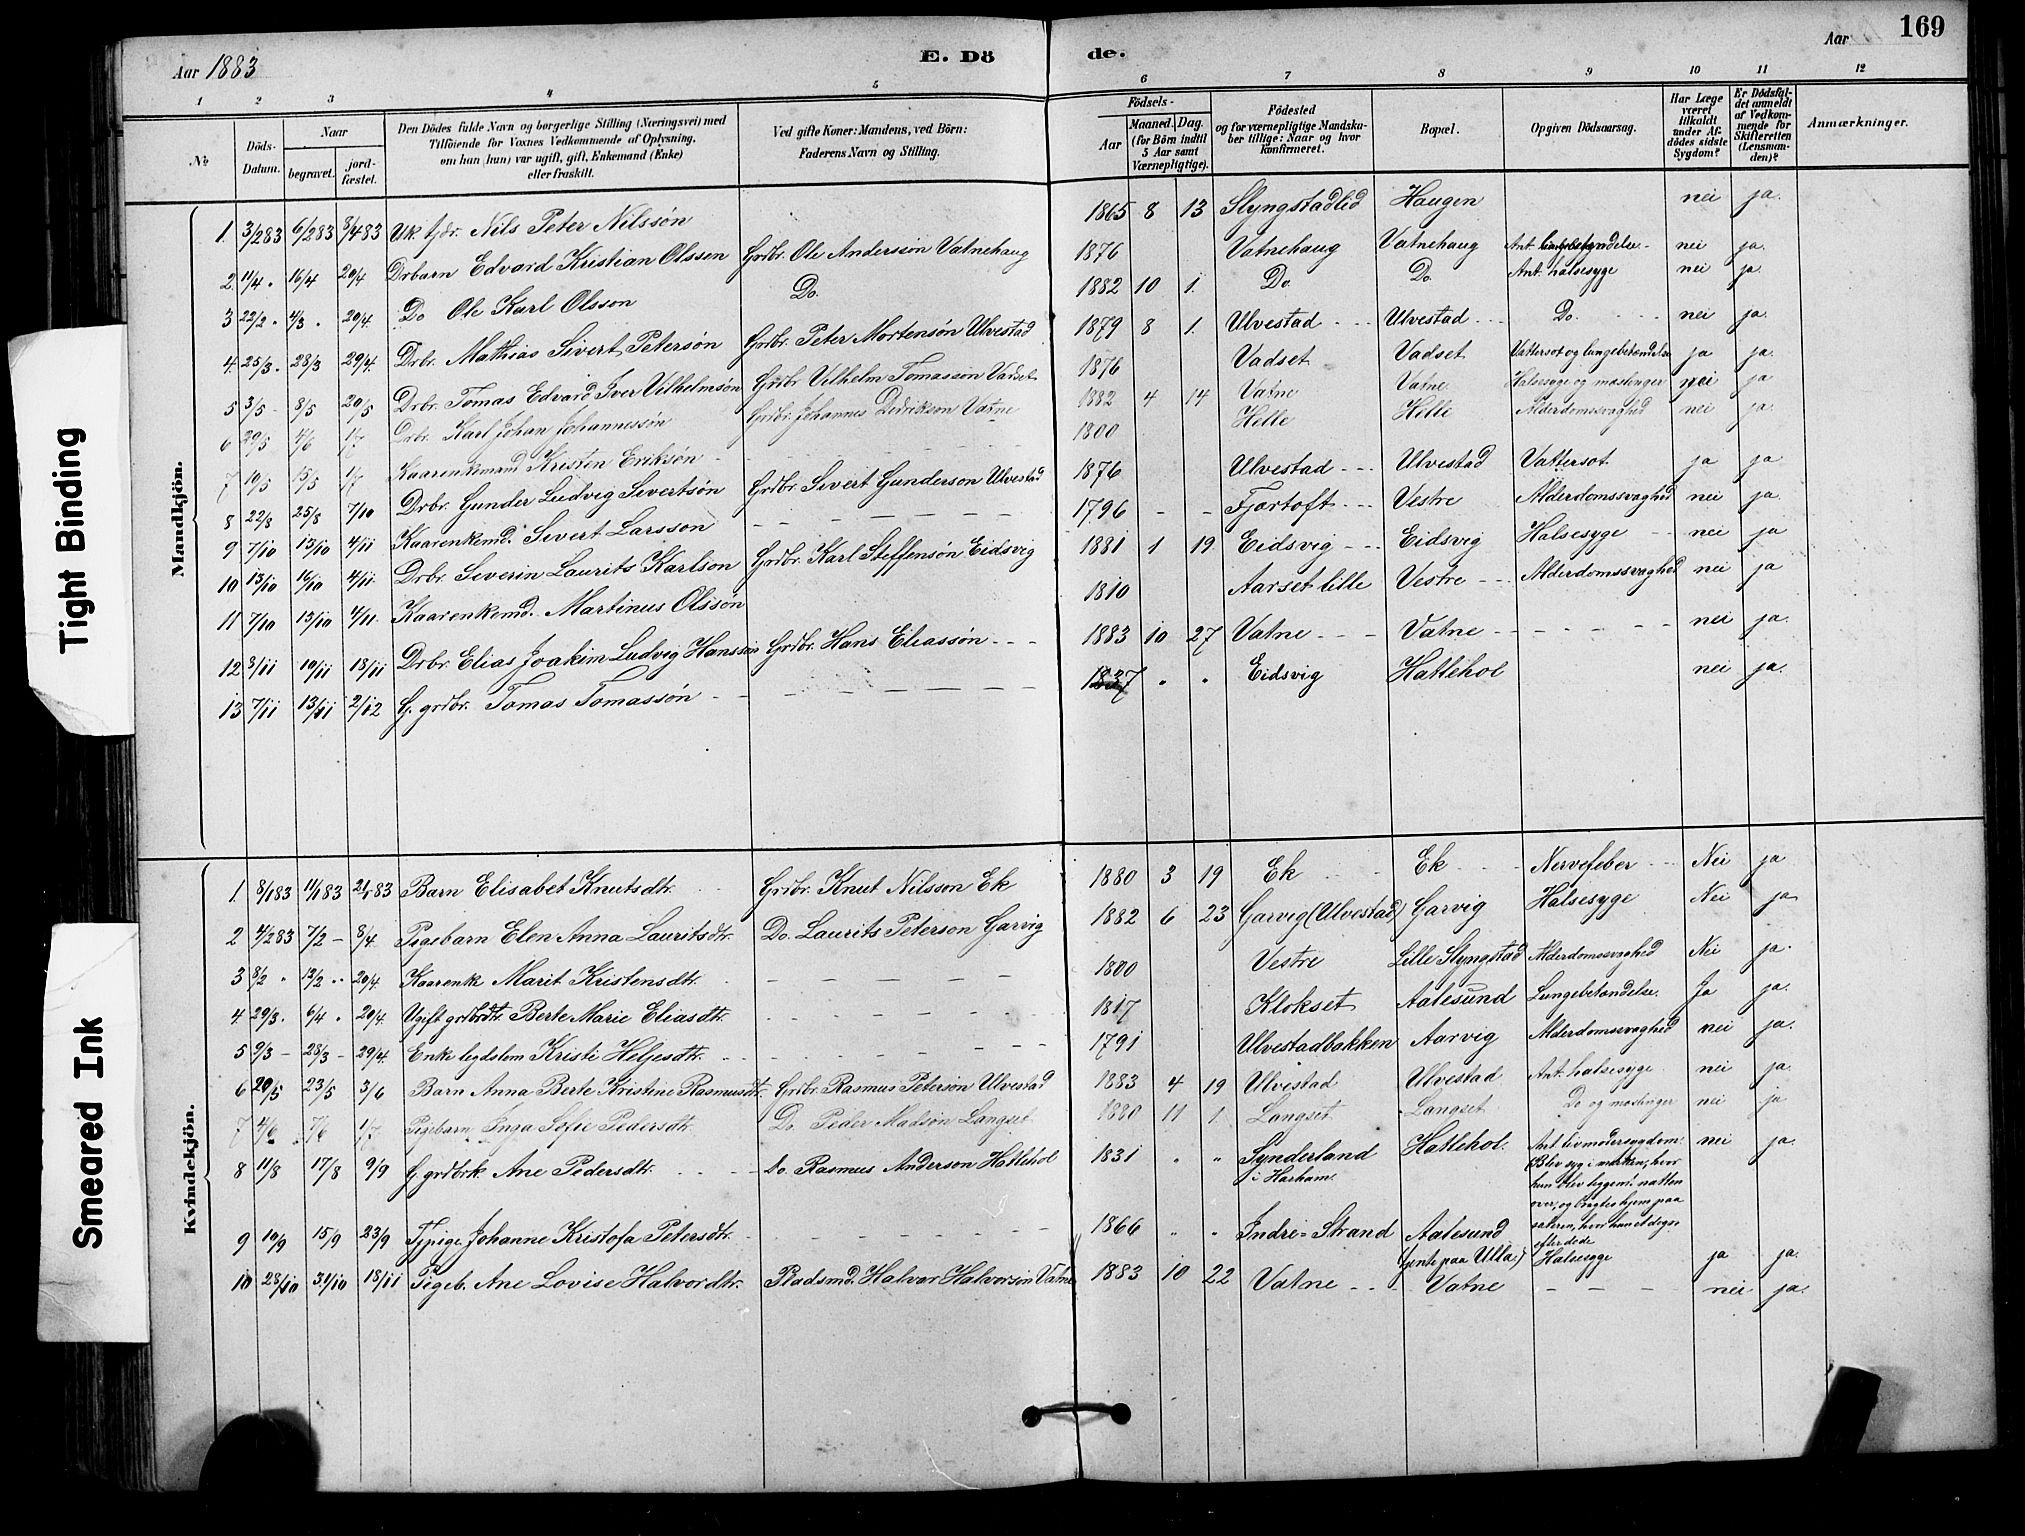 Aar 1883
E. Döde.
Aar
169
1 2 3 4 5 6 7 8 9 10 11 12
No
Döds-Datum.
Naar
begravet.
jord-fæstet.
Den Dödes fulde Navn og borgerlige Stilling (Næringsvei) med
Tilföiende for Voxnes Vedkommende af Oplysning,
om han (hun) var ugift, gift, Enkemand (Enke)
eller fraskilt.
Ved gifte Koner: Mandens, ved Börn:
Faderens Navn og Stilling.
Födsels-
Aar
Maaned. Dag.
(for Börn indtil
5 Aar samt
Værnepligtige).
Födested
og for værnepligtige Mandska-
ber tillige: Naar og hvor
konfirmeret.
Bopæl.
Opgiven Dödsaarsag.
Har Læge
været
tilkaldt
under Af-
dödes sidste
Sygdom?
Er Dödsfal-
det anmeldt
af Vedkom-
mende for
Skifteretten
(Lensman-
den)?
Anmærkninger.
Mandkjön.
1. 3/2 83 6/2 83 8/4 83 Uk. fjdr. Nils Peter Nilssøn 1865 8 13 Slyngstadlid Haugen nei ja.
2. 11/4 " 16/4 20/4 Drbarn Edvard Kristian Olssen Grdbr. Ole Anderssøn Vatnehaug 1876 Vatnehaug Vatnehaug Ant. nei ja.
3 22/2 " 4/3 " 20/4. Do Ole Karl Olsson Do. 1882 10 1. Do. Do. Ant. halsesyge nei ja.
4. 25/3. 28/3 29/4. Drbr. Mathias Sivert Petersøn Grdbr. Peter Mortensøn Ulvestad 1879 8 1. Ulvestad Ulvestad Do. nei ja.
5 3/5 - 8/5 20/5 Drbr. Tomas Edvard Iver Vilhelmsøn Grdbr. Vilhelm Tomassøn Vadset 1876 Vadset Vadset Vattersot og lungebetændelse ja ja.
6 29/5 4/6 1/7 Drbr. Karl Johan Johannessøn Grdbr. Johannes Didrikson Vatne 1882 4 14 Vatne Vatne Halsesyge og mæslinger nei ja
7 10/5 15/5 1/7 Kaarenkemand Kristen Eriksøn 1800 Helle Helle Alderdomssvaghed nei ja.
8 22/8 25/8 7/10 Drbr. Gunder Ludvig Sivertsøn Grdbr. Sivert Gunderson Ulvestad 1876 Ulvestad Ulvestad Vattersot ja ja
9 7/10 13/10 4/11 Kaarenkemd. Sivert Larsson 1796 - - Fjørtoft Vestre Alderdomssvaghed nei ja.
10 13/10 16/10 4/11. Drbr. Severin Laurits Karlson Grdbr. Karl Steffensøn Eidsvig 1881 1 19 Eidsvig Eidsvig Halsesyge nei ja
11 7/10 13/10 4/11. Kaarenkemd. Martinus Olssøn 1810 Aarset lille Vestre Alderdomssvaghed nei ja
12 3/11 10/11 18/11 Drbr. Elias Joakim Ludvig Hanssøn Grdbr. Hans Eliassøn 1883 10 27 Vatne Vatne nei ja.
13 7/11 13/11 2/12 G. grdbr. Tomas Tomassøn 1837 " " Eidsvig Hattehol nei ja.
Kvindekjön.
1. 8/1 83 11/1 83 21/1 83 Barn Elisabet Knutsdtr. Grdbr. Knut Nilsson Ek 1880 3 19 Ek Ek Nervefeber Nei ja
2 4/2 83 7/2 - 8/4 Pigebarn Elen Anna Lauritsdtr. Do. Laurits Peterson Garvig 1882 6 23 Garvig (Ulvestad) Garvig Halsesyge Nei ja
3 8/2 " 12/2 " 20/4 Kaarenk Marit Kristensdtr. 1800 Vestre Lille Slyngstad Alderdomssvaghed Nei ja.
4. 29/3. 6/4 " 20/4. Ugift grdbrdtr. Berte Marie Eliasdtr. 1817 Klokset Aalesund Lungebetændelse. Ja ja.
5 9/3 - 28/3 - 29/4. Enke legdslem Kristi Helgesdtr. 1791 Ulvestadbakken Aarvig Alderdomssvaghed nei ja.
6 20/5 23/5 3/6 Barn Anna Berte Kristine Rasmusdtr. Grdbr. Rasmus Petersøn Ulvestad 1883 4 19 Ulvestad Ulvestad Ant. halsesyge nei ja.
7 4/6 7/6 1/7. Pigebarn Inga Sofie Pedersdtr. Do. Peder Madsøn Langset 1880 11 1. Langset Langset Do og mæslinger nei ja
8 11/8 17/8 9/9 G. grdbrk. Ane Pedersdtr. Do. Rasmus Anderson Hattehol 1831 " " Synderland i Harham. Hattehol. Ant. livmodersygdom. nei ja.
(Blev syg i marken, hvor
hun blev liggende natten
over, og bragtes hjem paa
sæteren, hvor hun et degn
efter døde
9 10/9 15/9 23/9 Tjpige Johanne Kristofa Petersdtr. 1866 " " Indre-Strand Aalesund
(jente paa Ulla) Halsesyge ja ja.
10 28/10 31/10 18/11 Pigeb. Ane Lovise Halvordtr. Pladsmd. Halvor Halvorsøn Vatne 1883 10 22 Vatne Vatne nei ja.
Tight Binding
Smeared Ink